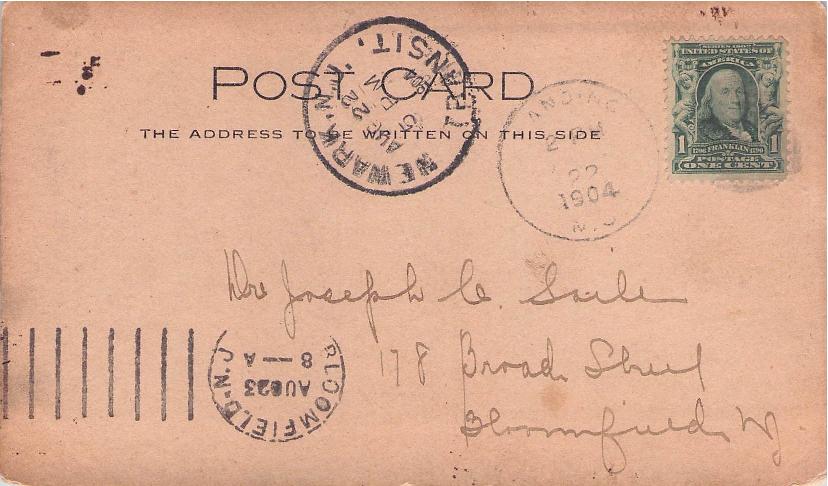 POST CARD
THE ADDRESS TO BE WRITTEN ON THIS SIDE
NEWARK, N.J.
AUG 22
PM
1904
TRANSIT.
LANDING
22
1904
N.J.
SERIES 1902
UNITED STATES OF
AMERICA
1 1706 FRANKLIN 1790 1
POSTAGE
ONE CENT
Dr Joseph C. Saile
178 Broad Street
Bloomfield NJ
BLOOMFIELD N.J.
AUG 23
8 — A